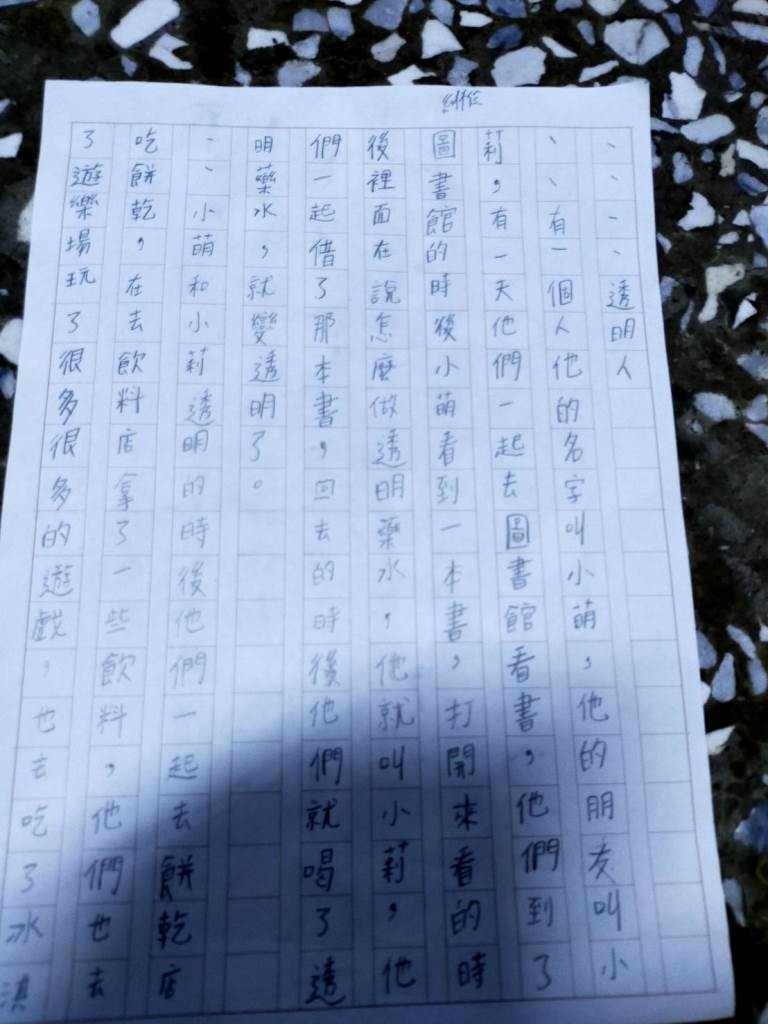 、、、、透明人
、、有一個人他的名字叫小萌，他的朋友叫小
莉，有一天他們一起去圖書館看書，他們到了
圖書館的時後小萌看到一本書，打開來看的時
後裡面在說怎麼做透明藥水，他就叫小莉，他
們一起借了那本書，回去的時後他們就喝了透
明藥水，就變透明了。
、、小萌和小莉透明的時後他們一起去餅乾店
吃餅乾，在去飲料店拿了一些飲料，他們也去
了遊樂場玩了很多很多的遊戲，也去吃了冰淇